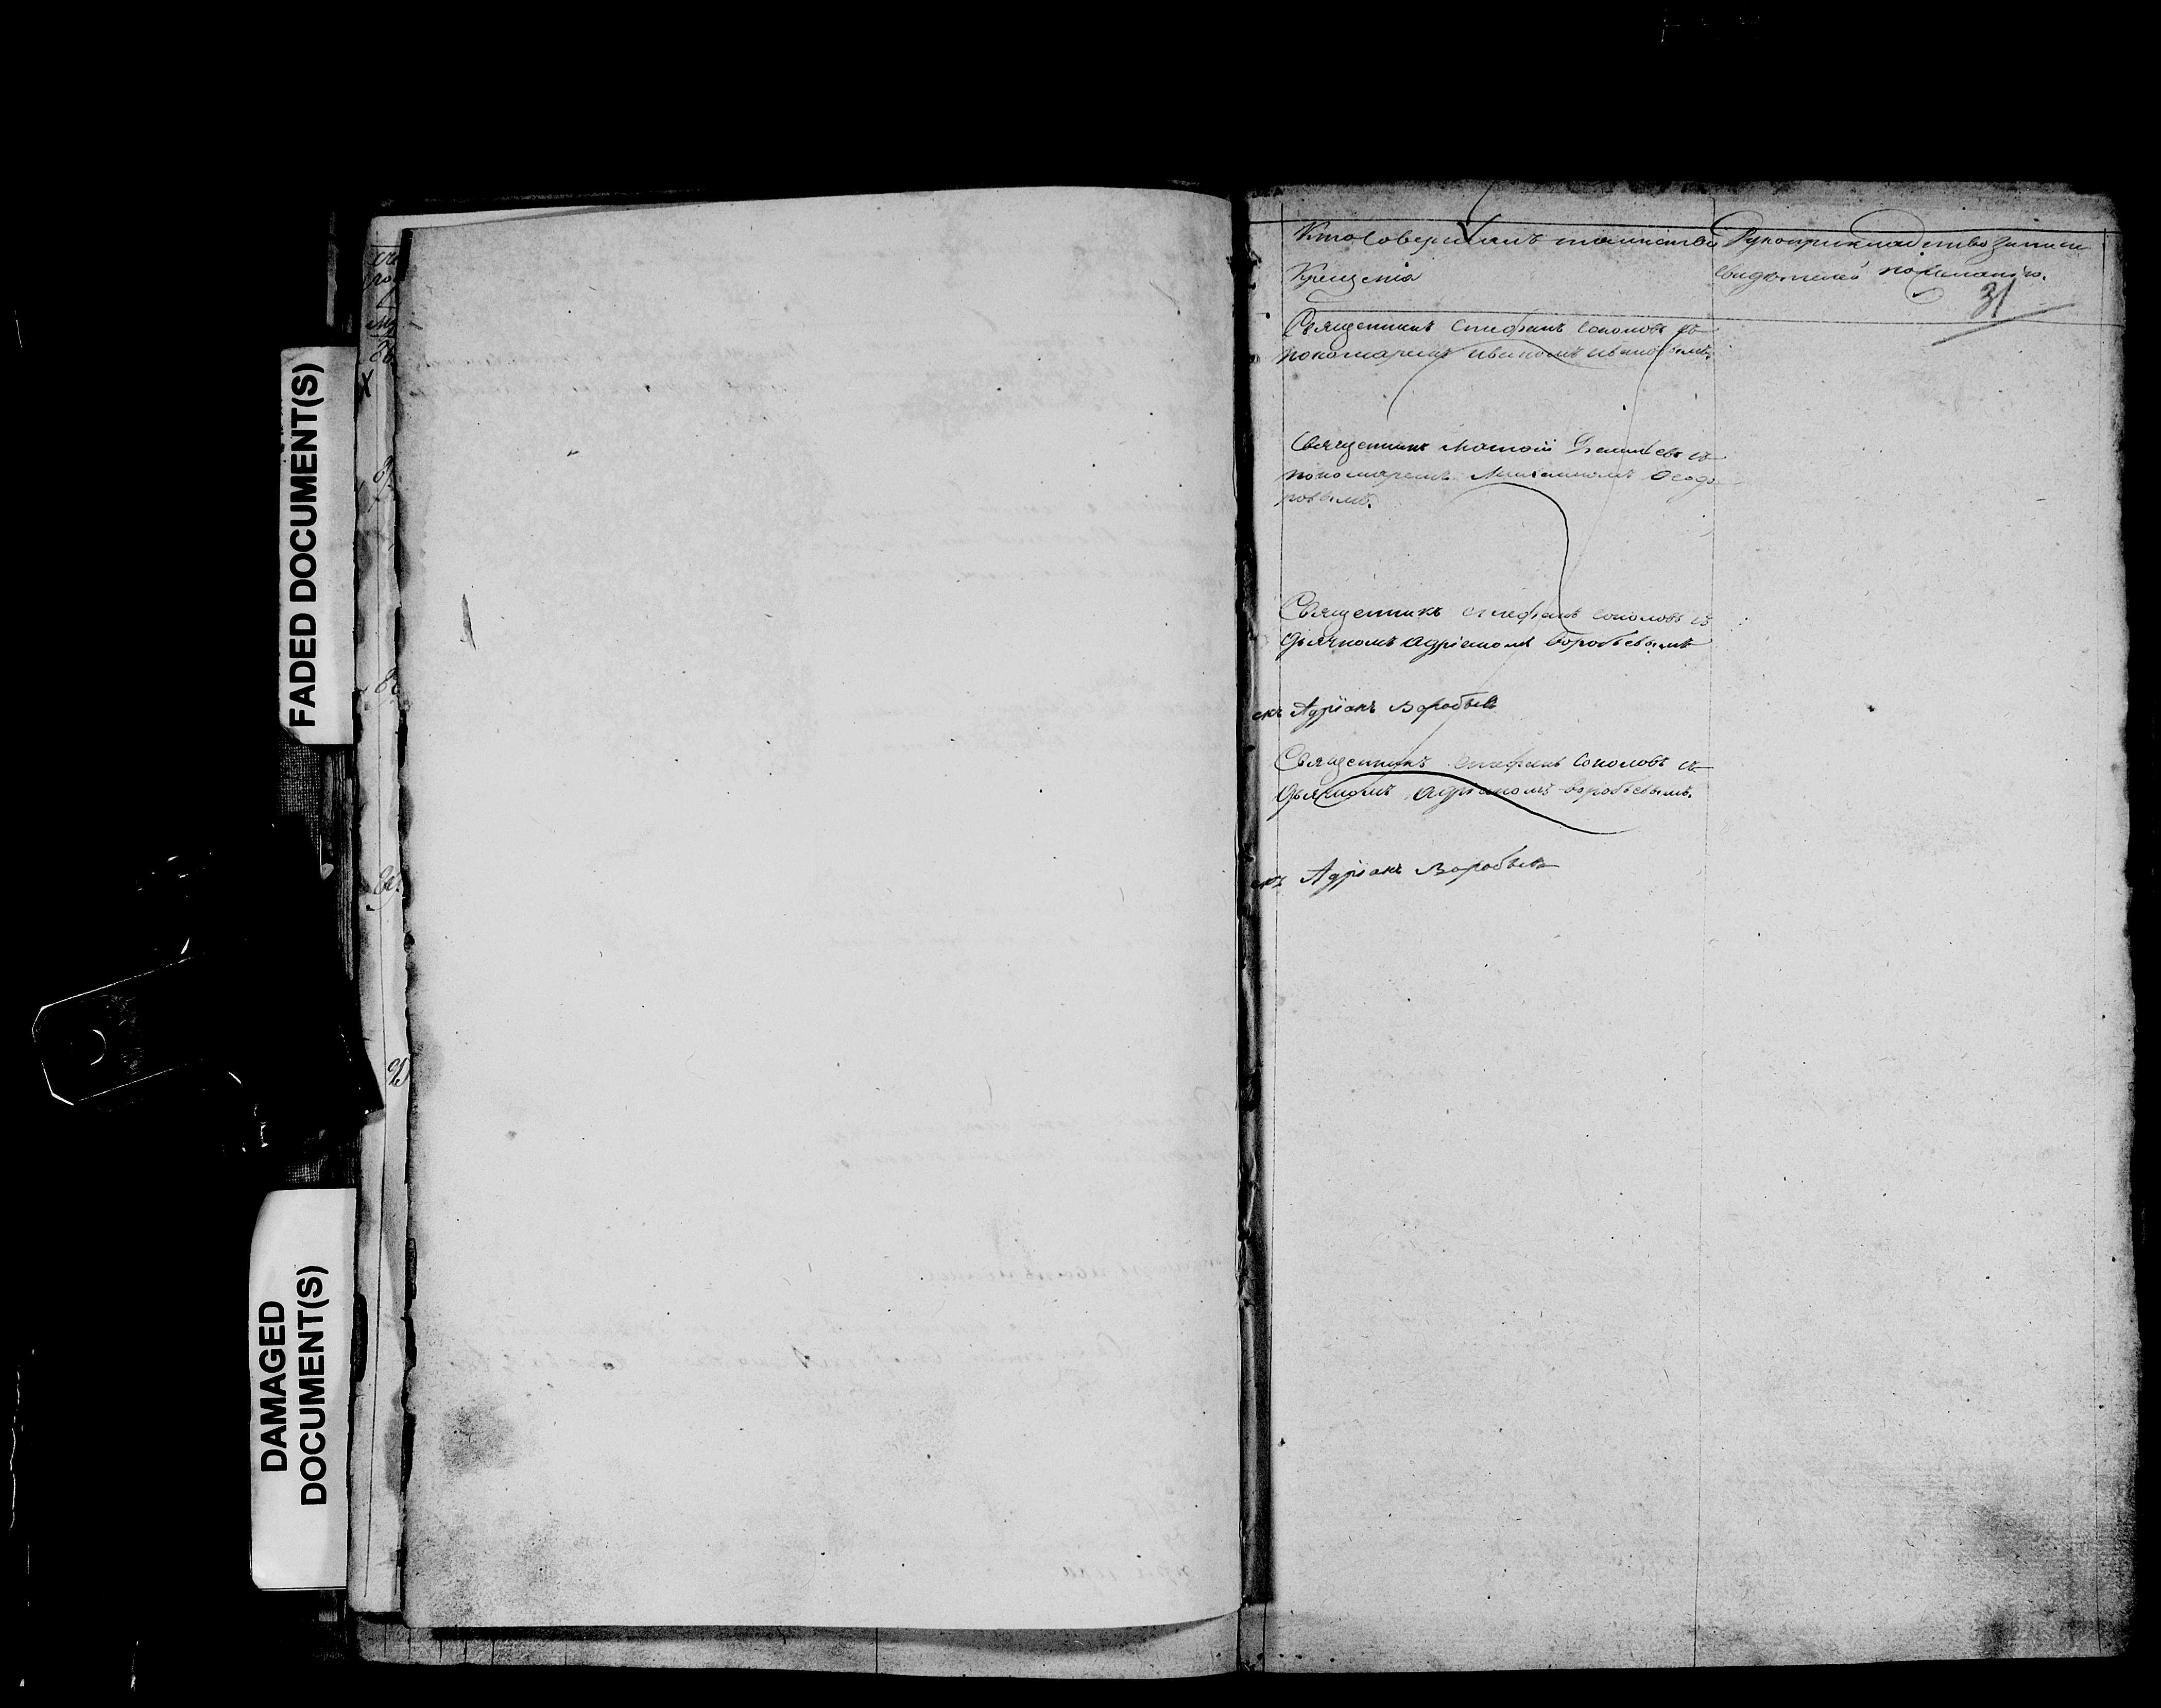 FADED DOCUMENT(S)
DAMAGED
DOCUMENT(S)
Кто совершалъ таинство
Крещенія
Рукоприкладство записи
свидетелей по желанію.
31
Священникъ Стефанъ Соколовъ съ
пономаремъ Иваномъ Ивановымъ.
Священникъ Матѳій съ
пономаремъ Михаиломъ Ѳеодо
ровымъ.
Священникъ Стефанъ Соколовъ съ
дьячкомъ Адріаномъ Воробьевымъ
Адріанъ Воробьевъ
Священникъ Стефанъ Соколовъ съ
дьячкомъ Адріаномъ Воробьевымъ.
Адріанъ Воробьевъ